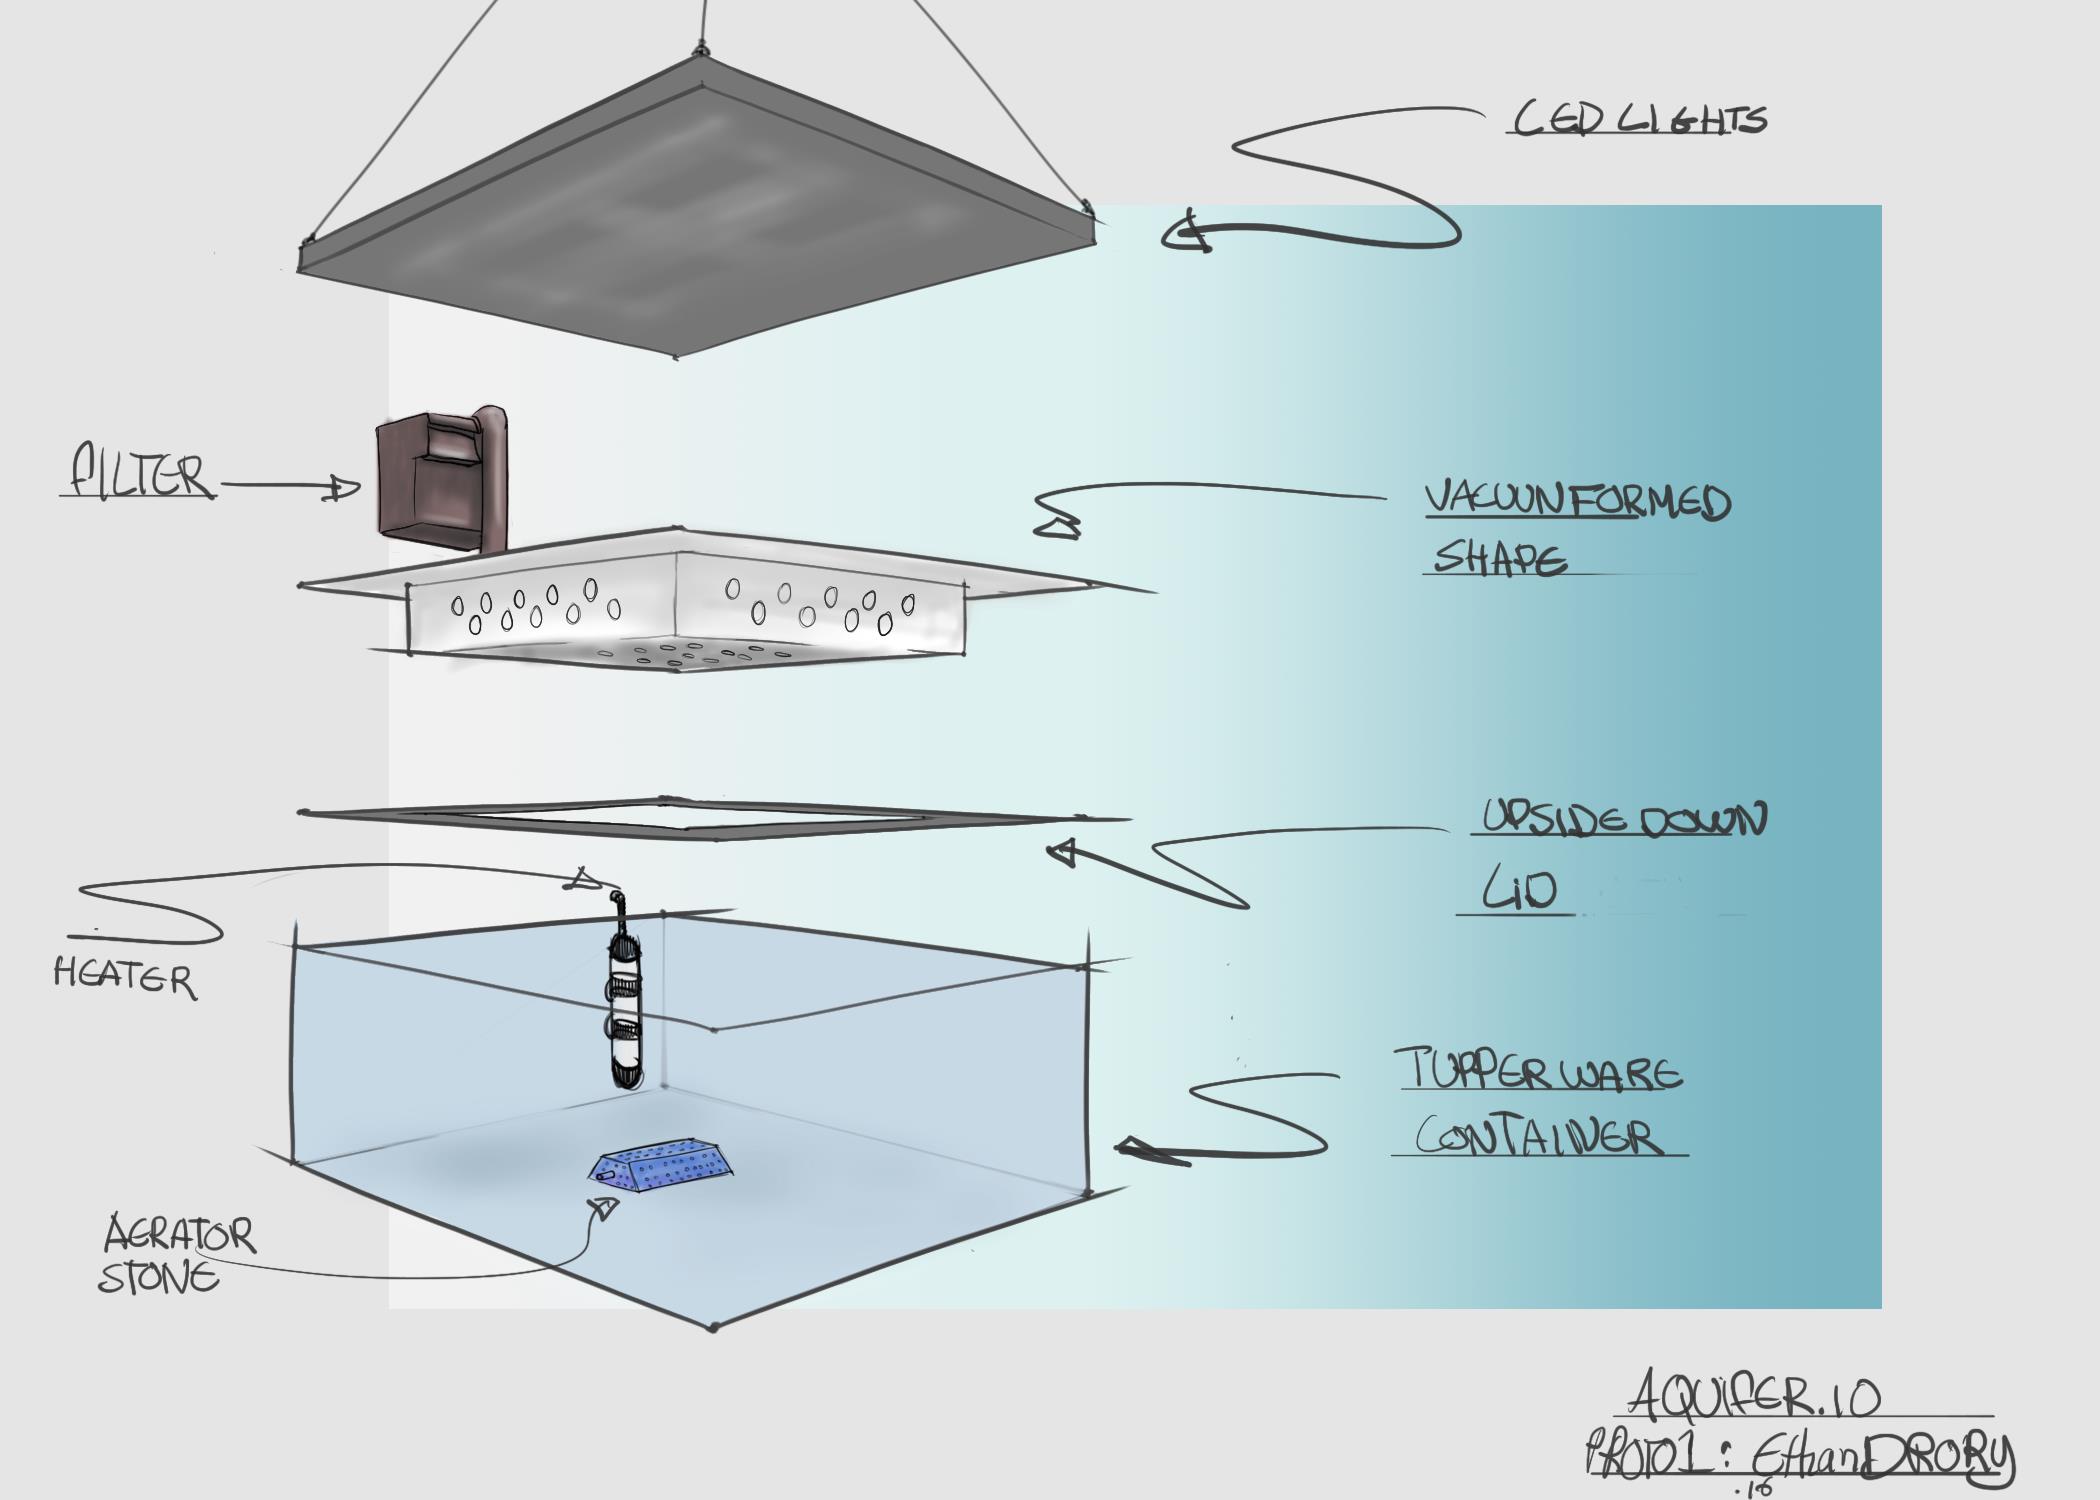 LED LIGHTS
FILTER
VACUUNFORMED
SHAPE
UPSIDE DOWN
LiD
HEATER
TUPPERWARE
CONTAINER
AERATOR
STONE
AQUIFER.IO
PROTO1: Ethan DRORY
.16